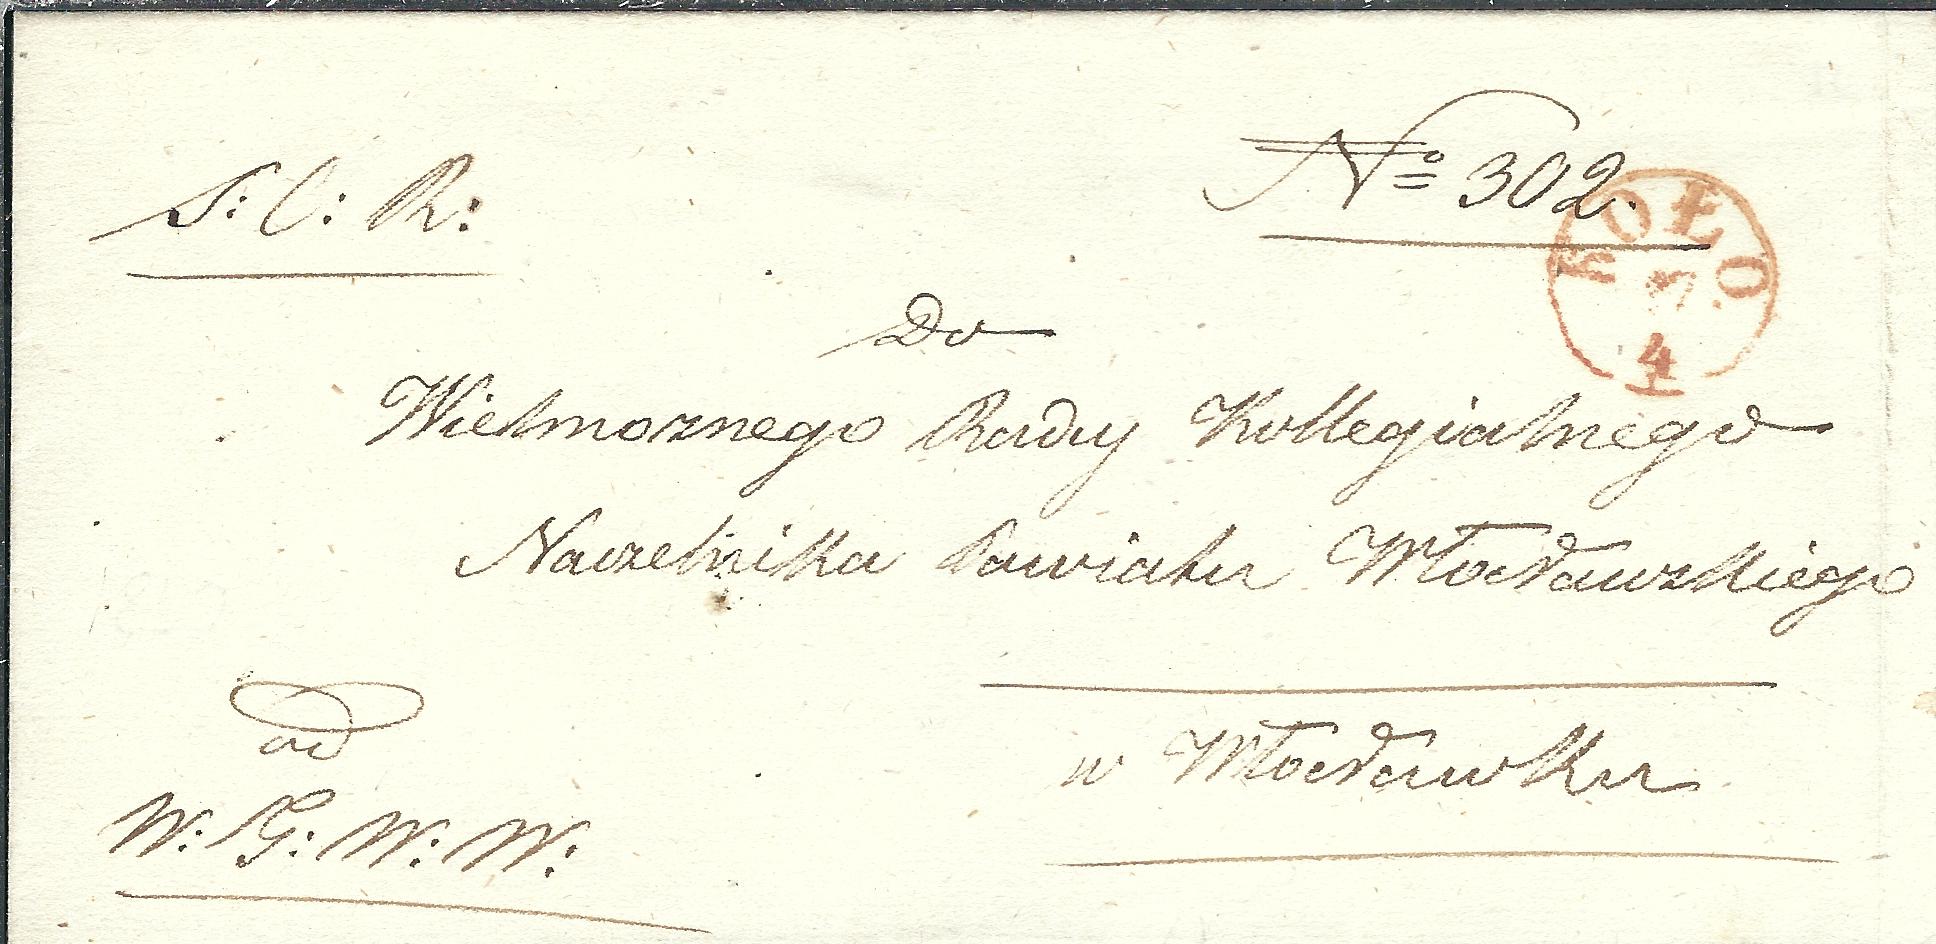 S: C: R:
№ 302.
KOŁO
4
Do
Wielmoznego Radcy Kollegialnego
Naczelnika Powiatu Włocławskiego
w Włocławku
od
W: G: W: W: